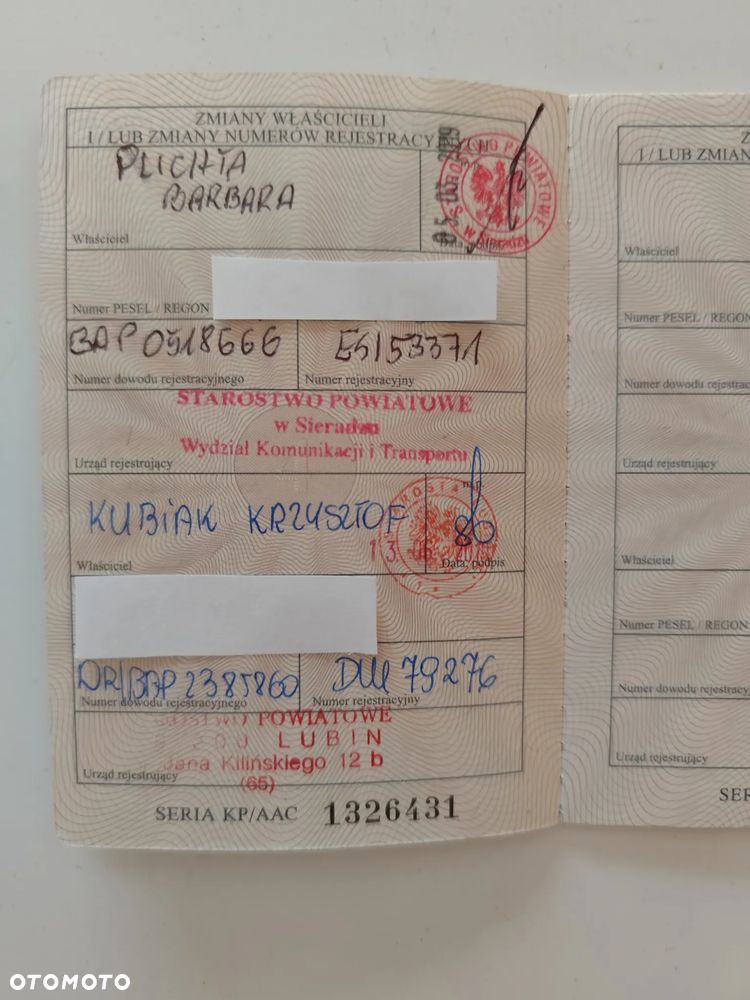 ZMIANY WŁAŚCICIELI
I / LUB ZMIANY NUMERÓW REJESTRACYJNYCH
PLICHTA
BARBARA
Właściciel
Data, podpis
STAROSTWO POWIATOWE
w Sieradzu
Numer PESEL / REGON
BAP0518666
ES153371
Numer dowodu rejestracyjnego
Numer rejestracyjny
STAROSTWO POWIATOWE
w Sieradzu
Wydział Komunikacji i Transportu
Urząd rejestrujący
m.p.
KUBIAK KRZYSZTOF
Właściciel
Data, podpis
DR/BAP2385860
DLU 79276
Numer dowodu rejestracyjnego
Numer rejestracyjny
POWIATOWE
LUBIN
Jana Kilińskiego 12 b
Urząd rejestrujący
(65)
SERIA KP/AAC 1326431
I / LUB ZMIAN
Właściciel
Numer PESEL / REGON
Numer dowodu rejestrac
Urząd rejestrujący
Właściciel
Numer PESEL / REGON
Numer dowodu rejestracy
Urząd rejestrujący
SER
OTOMOTO